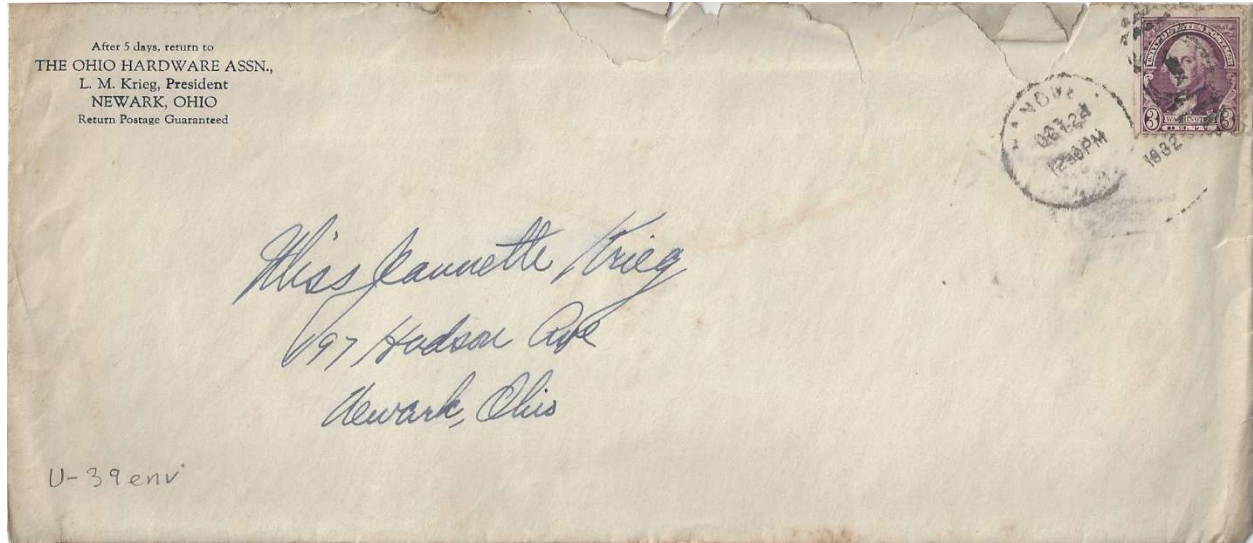 After 5 days, return to
THE OHIO HARDWARE ASSN.,
L. M. Krieg, President
NEWARK, OHIO
Return Postage Guaranteed
UNITED STATES POSTAGE
3 WASHINGTON 3
OCT 24
12 30 PM
1932
Miss Jeannette Krieg
197 Hudson Ave
Newark, Ohio
U-39 env